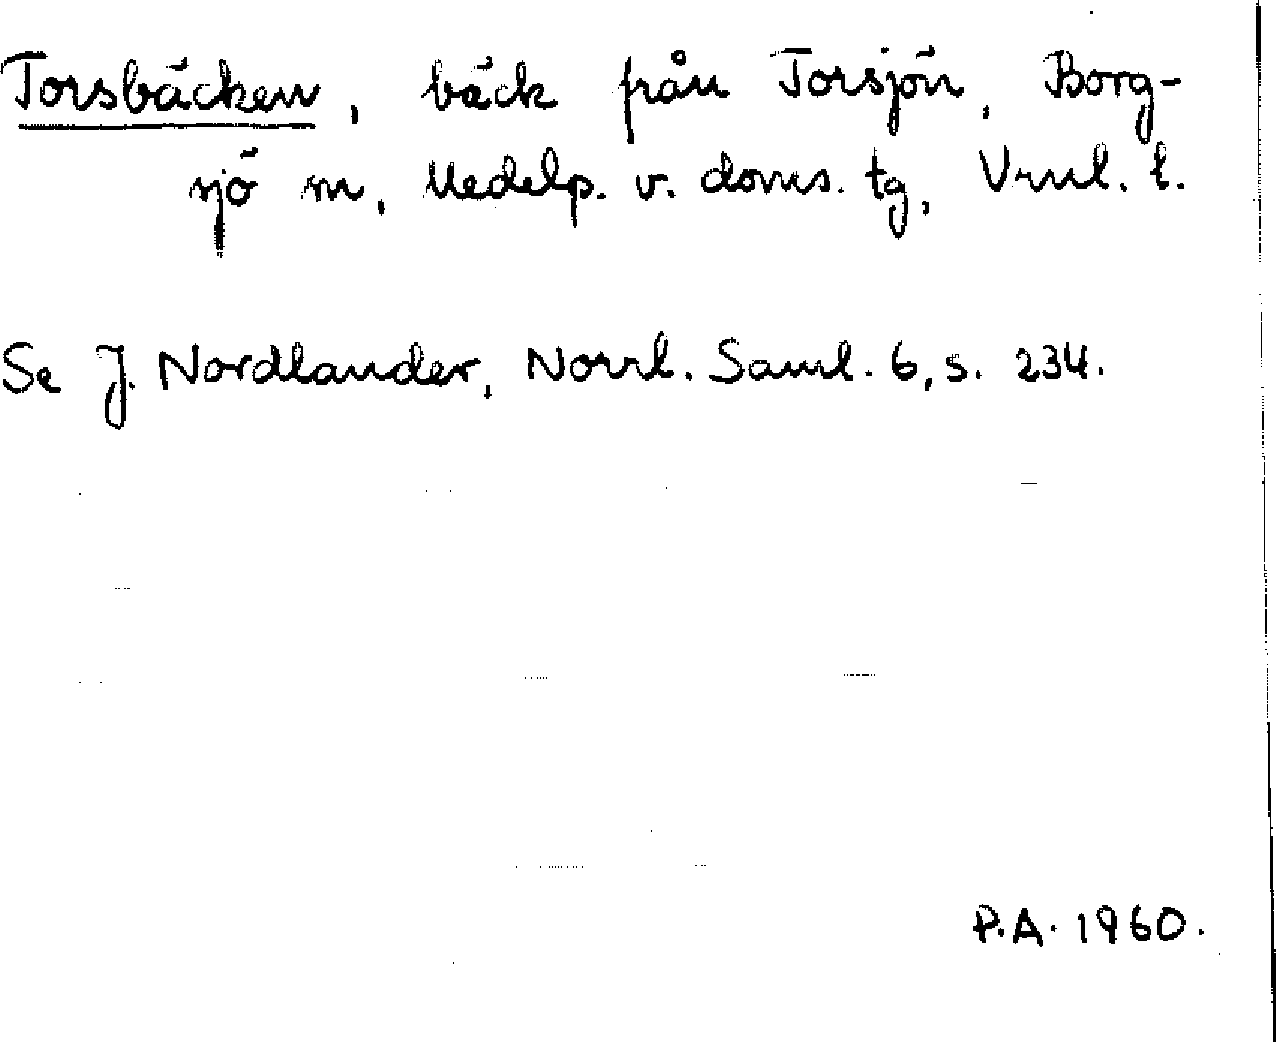 Torsbäcken, bäck från Torsjön, Borg-
sjö sn, Medelp. v. doms. tg, Vrnl. l.
Se J. Nordlander, Norrl. Saml. 6, s. 234.
P.A. 1960.